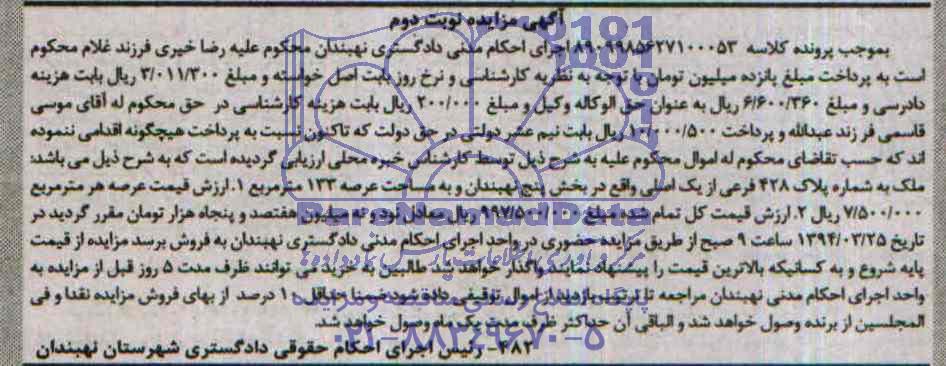 آگهی مزایده نوبت دوم
بموجب پرونده کلاسه ۸۹۰۹۹۸۵۶۲۷۱۰۰۰۵۳ اجرای احکام مدنی دادگستری نهبندان محکوم علیه رضا خیری فرزند غلام محکوم
است به پرداخت مبلغ پانزده میلیون تومان با توجه به نظریه کارشناسی و نرخ روز بابت اصل خواسته و مبلغ ۳/۰۱۱/۳۰۰ ریال بابت هزینه
دادرسی و مبلغ ۶/۶۰۰/۳۶۰ ریال به عنوان حق الوکاله وکیل و مبلغ ۲۰۰/۰۰۰ ریال بابت هزینه کارشناسی در حق محکوم له آقای موسی
قاسمی فرزند عبدالله و پرداخت ۱۰/۰۰۰/۵۰۰ ریال بابت نیم عشر دولتی در حق دولت که تاکنون نسبت به پرداخت هیچگونه اقدامی ننموده
اند که حسب تقاضای محکوم له اموال محکوم علیه به شرح ذیل توسط کارشناس خبره محلی ارزیابی گردیده است که به شرح ذیل می باشد:
ملک به شماره پلاک ۴۲۸ فرعی از یک اصلی واقع در بخش پنج نهبندان و به مساحت عرصه ۱۳۳ مترمربع ۱.ارزش قیمت عرصه هر مترمربع
۷/۵۰۰/۰۰۰ ریال ۲.ارزش قیمت کل تمام شده مبلغ ۹۹۷/۵۰۰/۰۰۰ ریال معادل نود و نه میلیون هفتصد و پنجاه هزار تومان مقرر گردید در
تاریخ ۱۳۹۴/۰۳/۲۵ ساعت ۹ صبح از طریق مزایده حضوری در واحد اجرای احکام مدنی دادگستری نهبندان به فروش برسد مزایده از قیمت
پایه شروع و به کسانیکه بالاترین قیمت را پیشنهاد نمایند واگذار خواهد شد طالبین به خرید می توانند ظرف مدت ۵ روز قبل از مزایده به
واحد اجرای احکام مدنی نهبندان مراجعه تا ترتیب بازدید از اموال توقیفی داده شود ضمنا حداقل ۱۰ درصد از بهای فروش مزایده نقدا و فی
المجلسین از برنده وصول خواهد شد و الباقی آن حداکثر ظرف مدت یک ماه وصول خواهد شد.
۴۸۲- رئیس اجرای احکام حقوقی دادگستری شهرستان نهبندان
ParsNamadData
۰۲۱-۸۸۳۴۹۶۷۰-۵